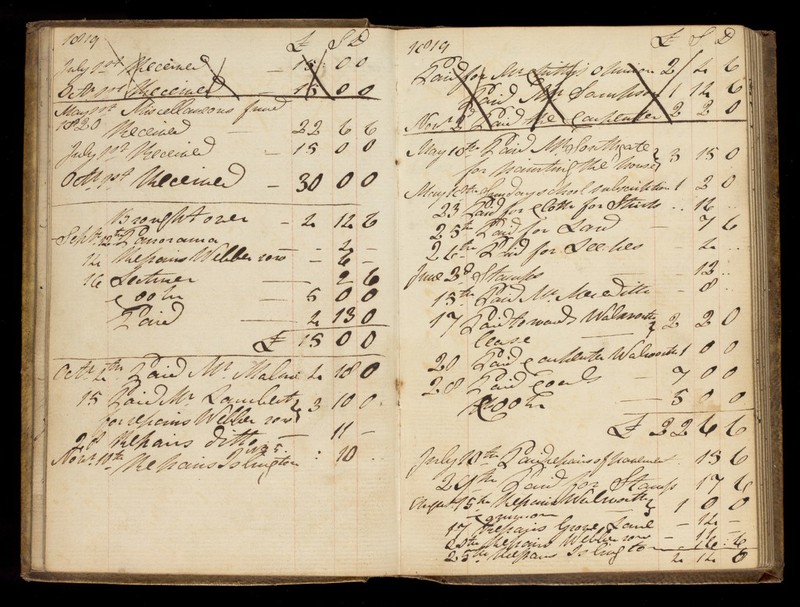 1819 £ S D
July 1st Received — 15 0 0
Octr 1st Received 15 0 0
May 1st Miscellaneous fund
1820 Received 22 6 6
July 1st Received — 15 0 0
Octr 1st Received — 30 0 0
Brought over — 2 12 6
Septr 12th Panorama — 2 —
14 Repairs Webber row — 6 —
16 Lecturer — 2 6
— 5 0 0
Paid — 2 13 0
£ 15 0 0
Octr Paid Mr 2 18 0
15 Paid Mr Lambert
for repairs Webber row 3 10 0
28 Repairs ditto 11 —
Novr 11th Repairs Islington : 10 .
1819 £ S D
Paid for Mr opinion 2 2 6
Paid Mr Sampson 1 12 6
Novr 2d Paid the Carpenter 2 2 0
May 10th Paid Mr Southgate
for painting the house 3 15 0
May 12th Sunday school subscription 1 2 0
23 Paid for Cloth for .. 16 ..
25th Paid for Land — 7 6
26th Paid for — 2 ..
June 3d Stamps — 12 ..
13th Paid Mr Meredith — 8 .
17 Paid towards Walworth
lease — 2 2 0
20 Paid Walworth 1 0 0
28 Paid Coals — 7 0 0
— 5 0 0
£ 22 6 6
July 10th Paid repairs of pavement . 13 6
29th Paid for Stamps 17 6
August 15th Repairs Walworth
Common 1 0 0
17 Repairs Grove Lane — 12 —
Repairs Webber row — 16 : 6
25th Repairs Islington 2 12 6